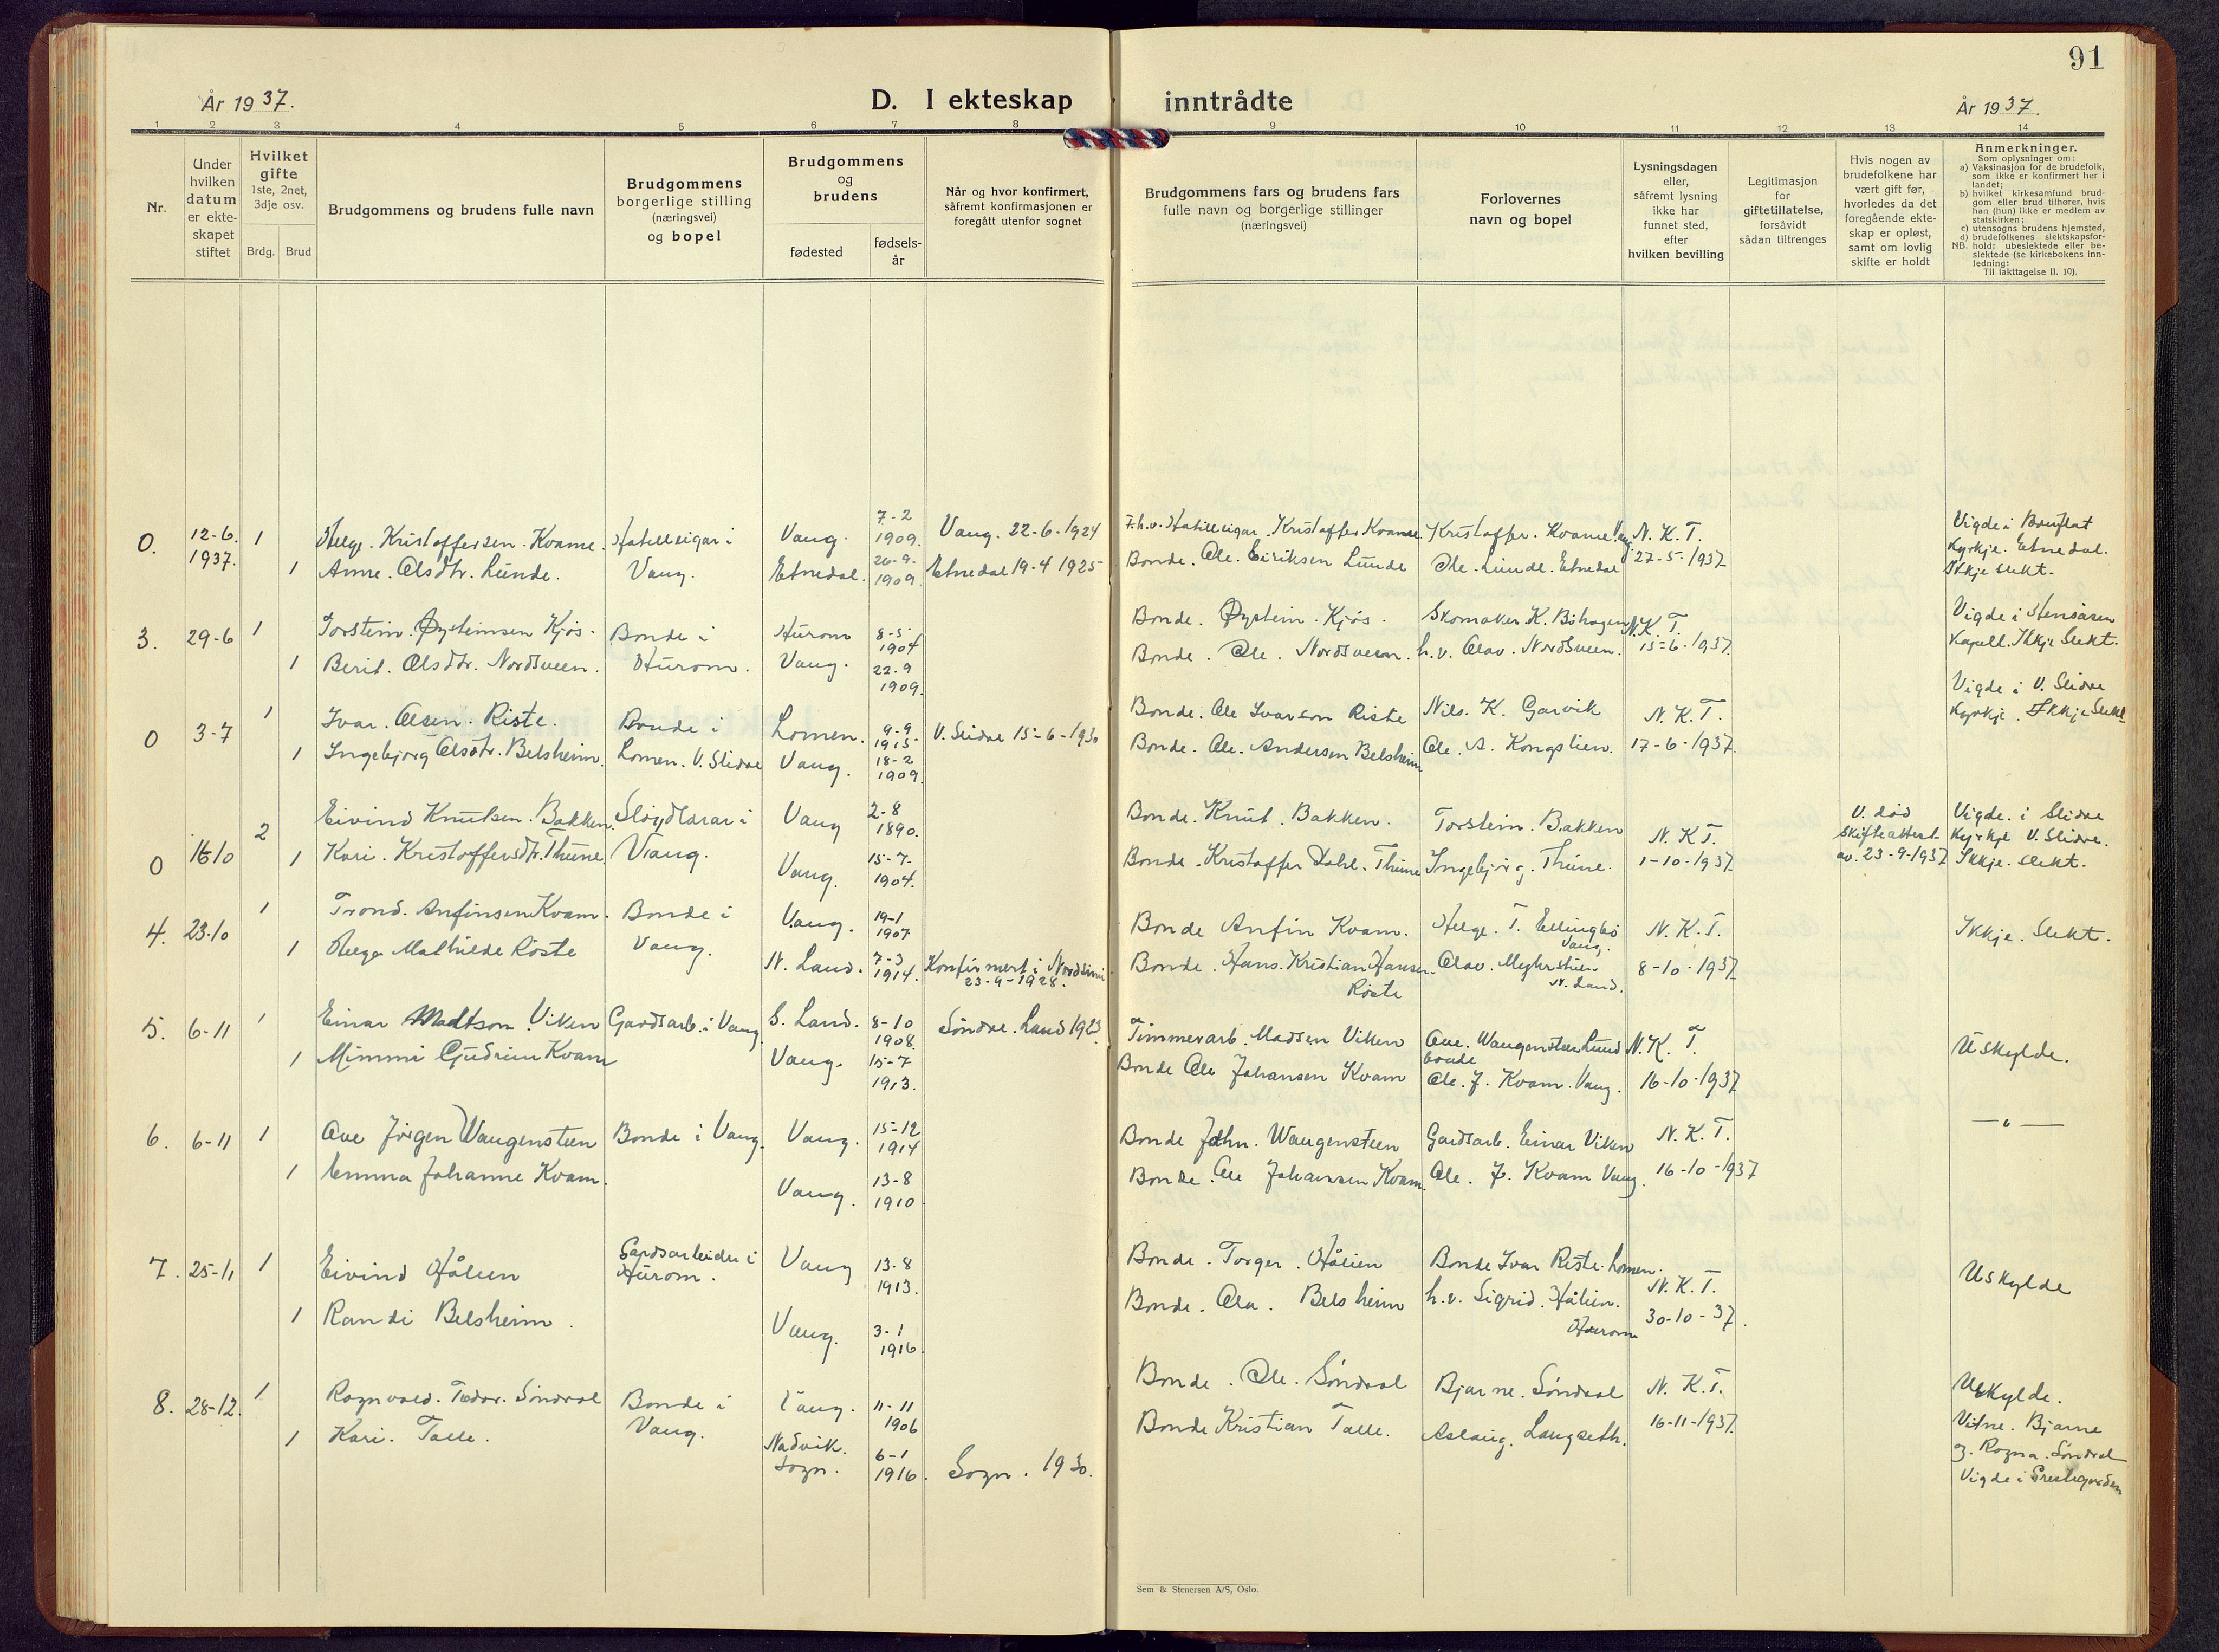 91
År 1937.
D. I ekteskap inntrådte
År 1937.
1 2 3 4 5 6 7 8 9 10 11 12 13 14
Nr.
Under
hvilken
datum
er ekte-
skapet
stiftet
Hvilket
gifte
1ste, 2net,
3dje osv.
Brdg. Brud
Brudgommens og brudens fulle navn
Brudgommens
borgerlige stilling
(næringsvei)
og bopel
Brudgommens
og
brudens
fødested
fødsels-
år
Når og hvor konfirmert,
såfremt konfirmasjonen er
foregått utenfor sognet
Brudgommens fars og brudens fars
fulle navn og borgerlige stillinger
(næringsvei)
Forlovernes
navn og bopel
Lysningsdagen
eller,
såfremt lysning
ikke har
funnet sted,
efter
hvilken bevilling
Legitimasjon
for
giftetillatelse,
forsåvidt
sådan tiltrenges
Hvis nogen av
brudefolkene har
vært gift før,
hvorledes da det
foregående ekte-
skap er opløst,
samt om lovlig
skifte er holdt
Anmerkninger.
Som oplysninger om:
a) Vaksinasjon for de brudefolk,
som ikke er konfirmert her i
landet;
b) hvilket kirkesamfund brud-
gom eller brud tilhører, hvis
han (hun) ikke er medlem av
statskirken;
c) utensogns brudens hjemsted,
d) brudefolkenes slektskapsfor-
NB. hold: ubeslektede eller be-
slektede (se kirkebokens inn-
ledning:
Til iakttagelse II. 10).
0. 12-6. 1937. 1 Helge. Kristoffersen. Kvame. Hotelleigar i Vang. 7-2 1909. Vang. 22-6-1924 F.h.v. Hotelleigar. Kristoffer Kvame. Kristoffer. Kvame. Vang N. K. T. Vigde i Bruflat
1 Anne. Olsdtr. Lunde. Vang. Etnedal. 26-9- 1909. Etnedal 19-4 1925 Bonde. Ole. Eiriksen Lunde Ole. Lunde. Etnedal 27-5-1937 kyrkje. Etnedal.
Ikkje slekt.
3. 29-6 1 Torstein. Øysteinsen Kjøs. Bonde i Hurom 8-5 1904 Bonde. Øystein. Kjøs. Skomaker K. Böhagen N.K.T. Vigde i Stensåsen
1 Berit. Olsdtr. Nordsveen. Hurom. Vang. 22.9 1909. Bonde. Ole. Nordsveen. h.v. Olav. Nordsveen. 15-6-1937. Kapell. Ikkje Slekt.
0 3-7 1 Ivar. Olsen. Riste. Bonde i Lomen. 9-9 1915- V. Slidre 15-6-1930 Bonde. Ole Ivarson Riste Nils. K. Garvik N.K.T. Vigde i V. Slidre
1 Ingebjørg Olsdtr. Belsheim. Lomen. V. Slidre Vang. 18-2 1909. Bonde. Ole. Andersen Belsheim Ole. A. Kongslien. 17-6-1937. kyrkje. Ikkje Slekt
0 16-10 2 Eivind Knutsen. Bakken. Sløydlærar i Vang 2-8 1890. Bonde. Knut. Bakken. Torstein. Bakken N.K.T. U. død Vigde. i Slidre
1 Kari. Kristoffersdtr. Thune. Vang. Vang. 15-7- 1904. Bonde. Kristoffer Dahl. Thune Ingebjørg. Thune. 1-10-1937 Skifteattest av. 23-9-1937 Kyrkje V. Slidre.
Ikkje. slekt.
4. 23-10 1 Trond. Anfinsen Kvam. Bonde i Vang. 19-1 1907 Bonde Anfin Kvam. Helge. T. Ellingbö Vang. N.K.T. Ikkje. Slekt.
1 Helga Mathilde Röste Vang. N. Land. 7-3 1914. Konfirmert i Nordsinni 23-9-1928. Bonde. Hans. Kristian Hansen. Röste Olav. N. Land. 8-10-1937
5. 6-11 1 Einar Madtson Viken Gardsarb. i Vang S. Land. 8-10 1908. Söndre. Land 1923. Timmerarb. Madsen Viken Ove. Waugensteen Lund bonde N.K.T. Uskylde.
1 Mimmi Gudrun Kvam Vang. 15-7 1913. Bonde Ole Johansen Kvam Ole. J. Kvam. Vang. 16-10-1937
6. 6-11 1 Ove Jörgen Waugensteen Bonde i Vang. Vang. 15-12 1914 Bonde John. Waugensteen Gardsarb. Einar Viken N.K.T. — " —
1 Emma Johanne Kvam. Vang. 13-8 1910. Bonde. Ole Johanssen Kvam. Ole. J. Kvam Vang. 16-10-1937
7. 25-11 1 Eivind Hålien Gardsarbeider i Hurom. Vang 13-8 1913. Bonde. Torger. Hålien Bonde Ivar Riste. Lomen. N.K.T. Uskylde
1 Randi Belsheim. Vang. 3-1 1916. Bonde. Ola. Belsheim h.v. Sigrid. Hålien. Hurom 30-10-37.
8. 28-12. 1 Rognvald. Teodor. Söndrol Bonde i Vang. 11-11 1906 Bonde. Ole. Söndrol Bjarne. Söndrol N.K.T. Uskylde.
1 Kari. Talle. Vang. Nadvik. Sogn. 6-1 1916. Sogn. 1930. Bonde Kristian Talle. Aslaug. Langseth. 16-11-1937. Vitne. Bjarne
og. Rogna. Söndrol
Vigde i Prestegarden
Sem & Stenersen A/S, Oslo.